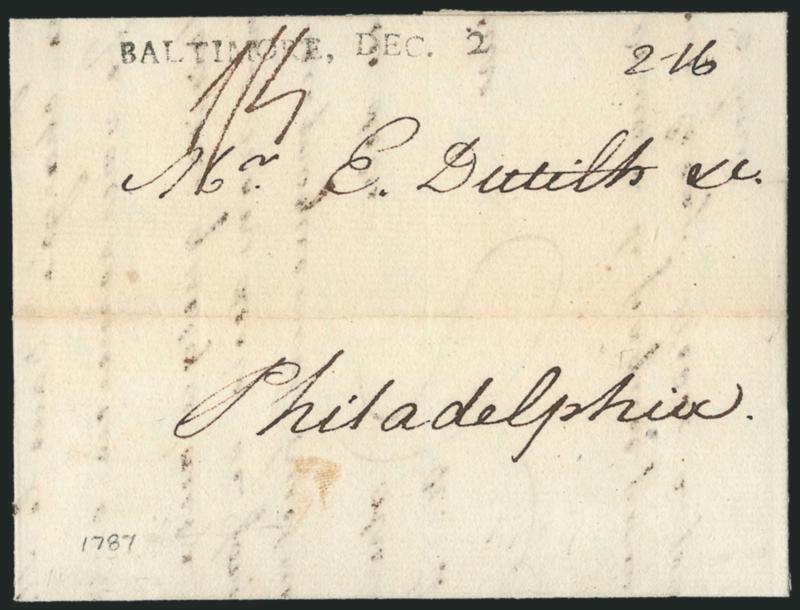 BALTIMORE, DEC. 2
2-16
Mr. E. Dutilh &c.
Philadelphia.
1787